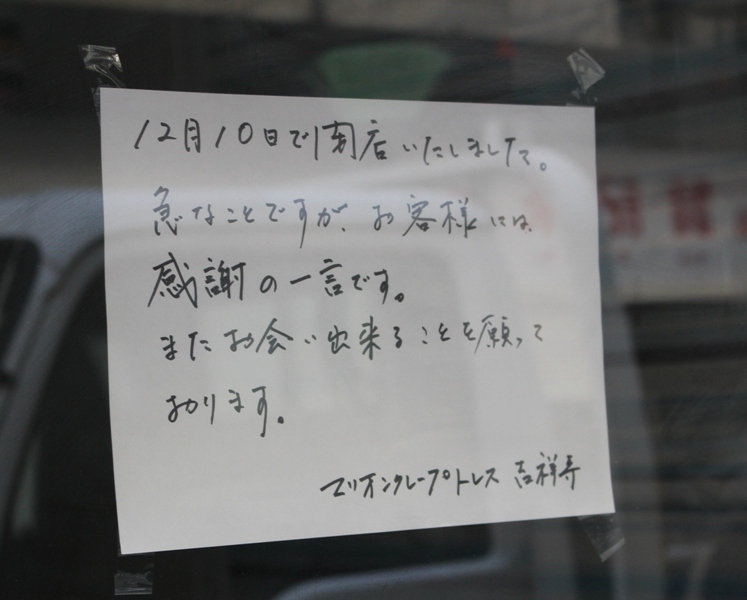 12月10日で閉店いたしました。
急なことですが、お客様には、
感謝の一言です。
またお会い出来ることを願って
おります。
マリオンクレープトレス 吉祥寺